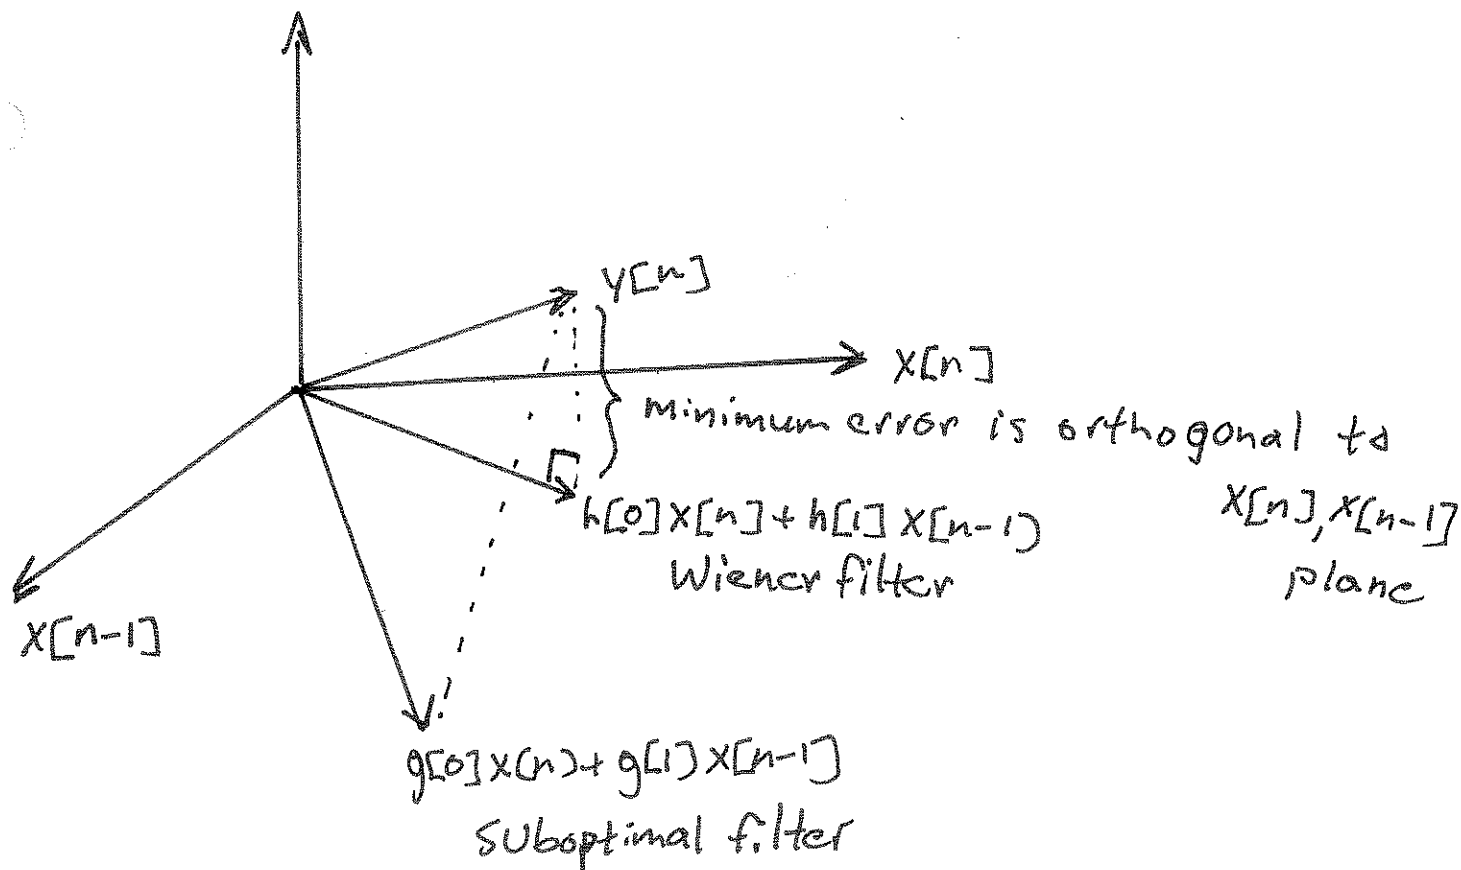 y[n]
x[n]
minimum error is orthogonal to
x[n], x[n-1]
plane
h[0]x[n] + h[1]x[n-1)
Wiener filter
x[n-1]
g[0]x(n) + g[1)x[n-1]
suboptimal filter